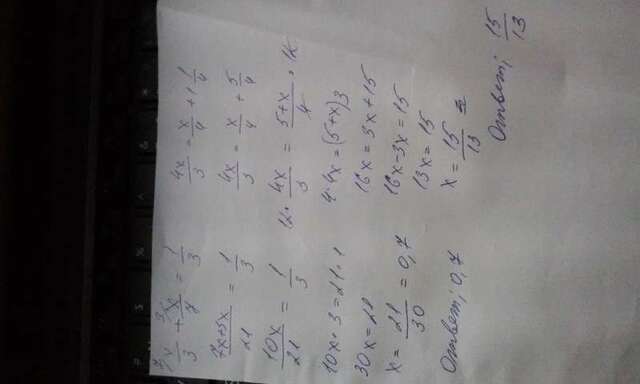 7 x/3 + 3 x/7 = 1/3
7x+3x/21 = 1/3
10x/21 = 1/3
10x · 3 = 21 · 1
30x = 21
x = 21/30 = 0,7
Ответ; 0,7
4x/3 = x/4 + 1 1/4
4x/3 = x/4 + 5/4
12 · 4x/3 = 5+x/4 · 12
4 · 4x = (5+x)3
16x = 3x+15
16x-3x = 15
13x = 15
x = 15/13
Ответ; 15/13